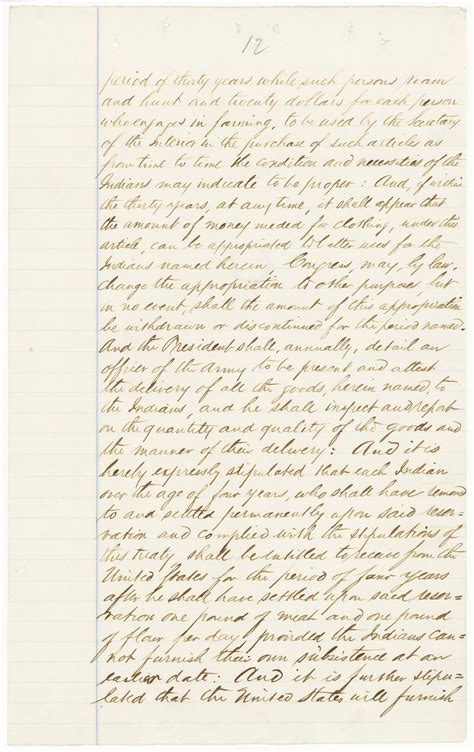 12
period of thirty years while such persons roam
and hunt and twenty dollars for each person
who engages in farming, to be used by the Secretary
of the Interior in the purchase of such articles as
from time to time the condition and necessities of the
Indians may indicate to be proper: And, if within
the thirty years, at any time, it shall appear that
the amount of money needed for clothing, under this
article, can be appropriated to better uses for the
Indians named herein, Congress, may, by law,
change the appropriation to other purposes but
in no event, shall the amount of this appropriation
be withdrawn or discontinued for the period named.
And the President shall, annually, detail an
officer of the Army to be present and attest
the delivery of all the goods, herein named, to
the Indians, and he shall inspect and report
on the quantity and quality of the goods and
the manner of their delivery: And it is
hereby expressly stipulated that each Indian
over the age of four years, who shall have removed
to and settled permanently upon said reser-
vation and complied with the stipulations of
this treaty shall be entitled to receive from the
United States for the period of four years
after he shall have settled upon said reser-
vation one pound of meat and one pound
of flour per day, provided the Indians can-
not furnish their own subsistence at an
earlier date: And it is further stipu-
lated that the United States will furnish